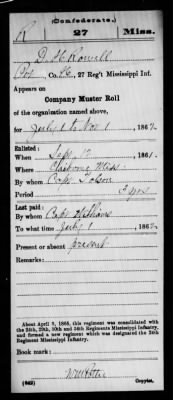 (Confederate.)
R 27 Miss.
D. H. Rowell
Co. , 27 Reg't Mississippi Inf.
Appears on
Company Muster Roll
of the organization named above,
for July 1 to Nov 1, 1862.
Enlisted:
When Sept , 1861.
Where Miss.
By whom Capt.
Period 3 yrs
Last paid:
By whom Capt.
To what time July 1, 1862.
Present or absent present
Remarks:
About April 9, 1865, this regiment was consolidated with
the 24th, 29th, 30th and 34th Regiments Mississippi Infantry,
and formed a new regiment which was designated the 24th
Regiment Mississippi Infantry.
Book mark:
(642) Copyist.